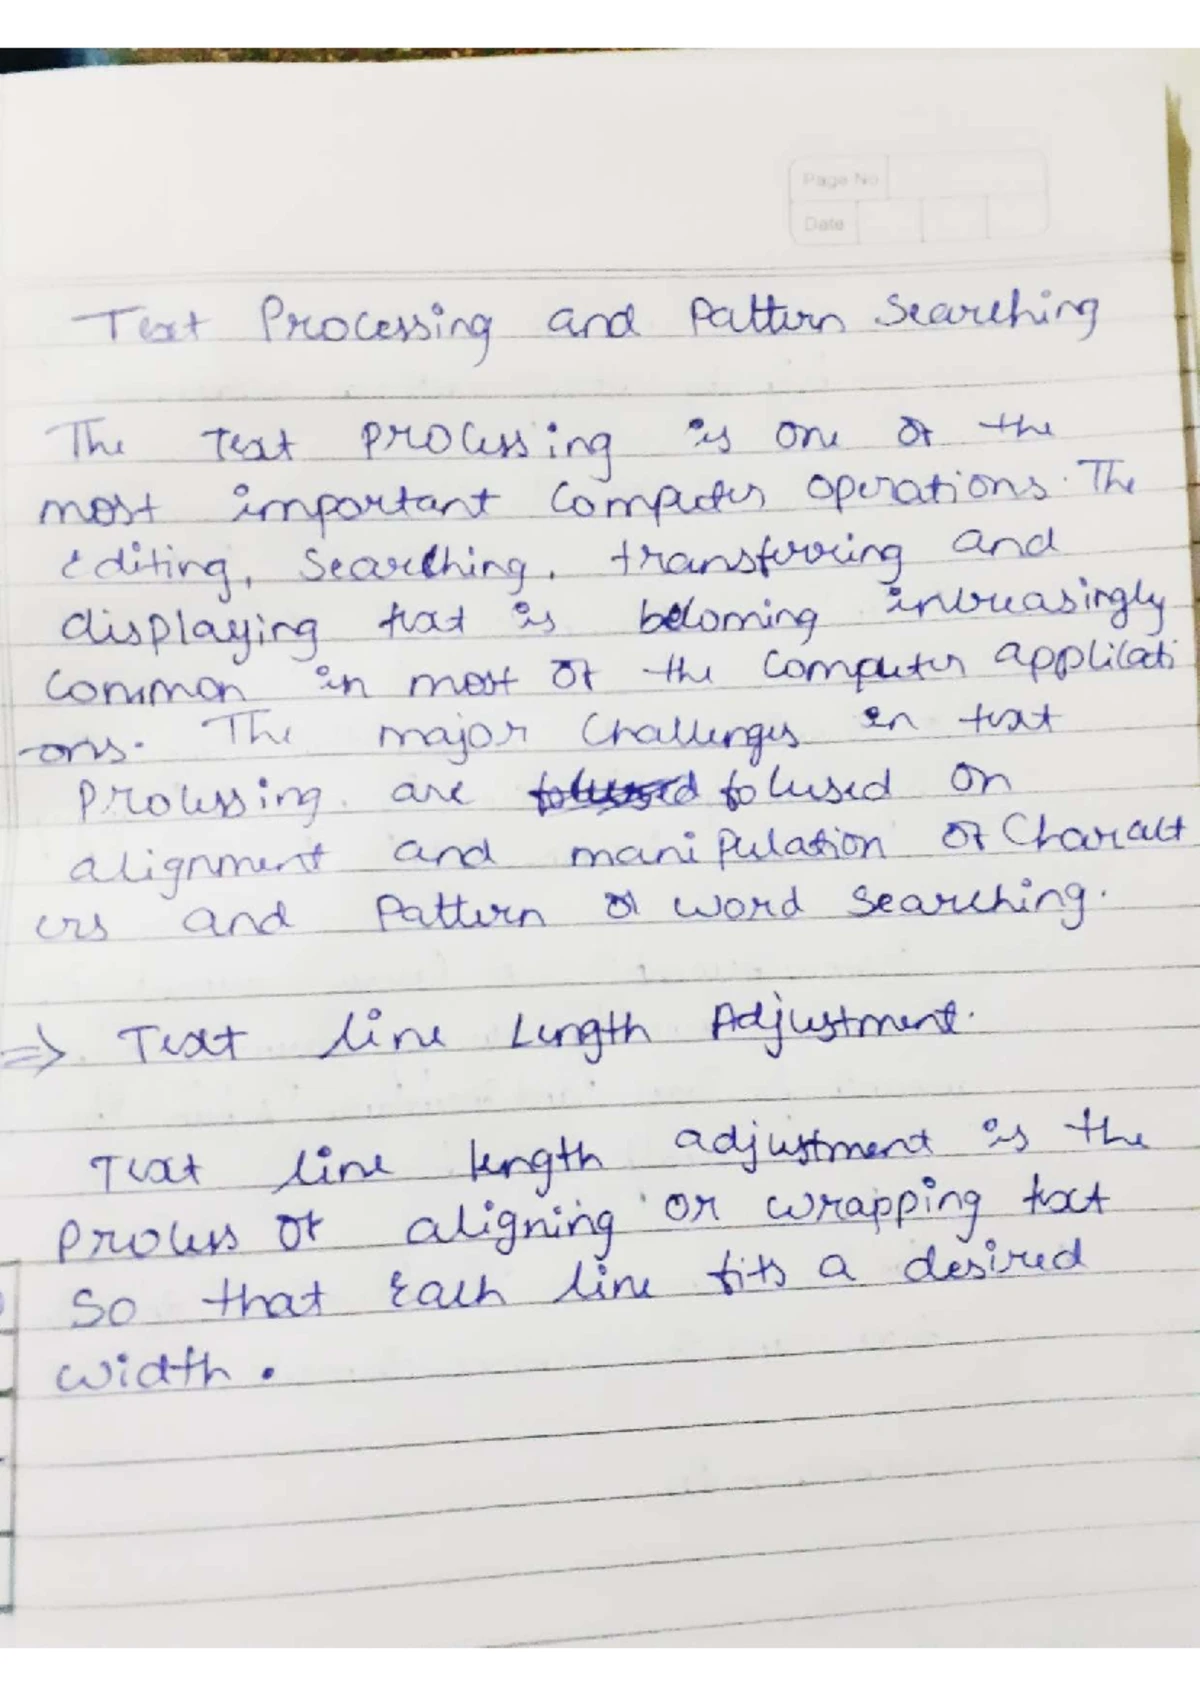 Page No
Date
Text Processing and Pattern Searching
The Text Processing is one of the
most important Computer operations. The
Editing, Searching, transferring and
displaying text is becoming increasingly
Common in most of the Computer applicati
-ons. The major Challenges in text
Processing are focused focused on
alignment and manipulation of Charact
ers and Pattern or word Searching.
⇒ Text line Length Adjustment.
Text line length adjustment is the
Process of aligning or wrapping text
So that Each line fits a desired
width.